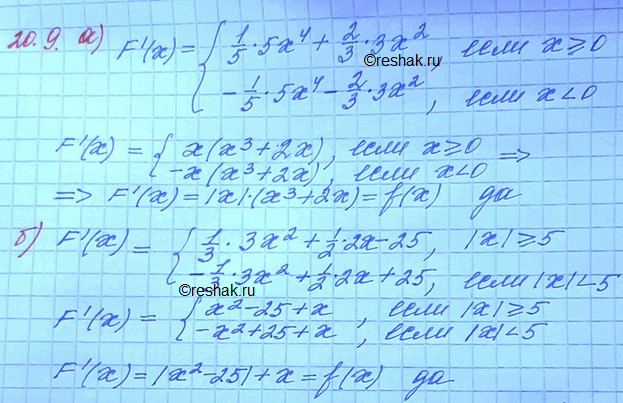 20.9. а) F'(x) = { 1/5 · 5x⁴ + 2/3 · 3x², если x ≥ 0
- 1/5 · 5x⁴ - 2/3 · 3x², если x < 0
©reshak.ru
F'(x) = { x(x³ + 2x), если x ≥ 0
-x(x³ + 2x), если x < 0 =>
=> F'(x) = |x| · (x³ + 2x) = f(x) да
б) F'(x) = { 1/3 · 3x² + 1/2 · 2x - 25, |x| ≥ 5
- 1/3 · 3x² + 1/2 · 2x + 25, если |x| < 5
©reshak.ru
F'(x) = { x² - 25 + x, если |x| ≥ 5
-x² + 25 + x, если |x| < 5
F'(x) = |x² - 25| + x = f(x) да